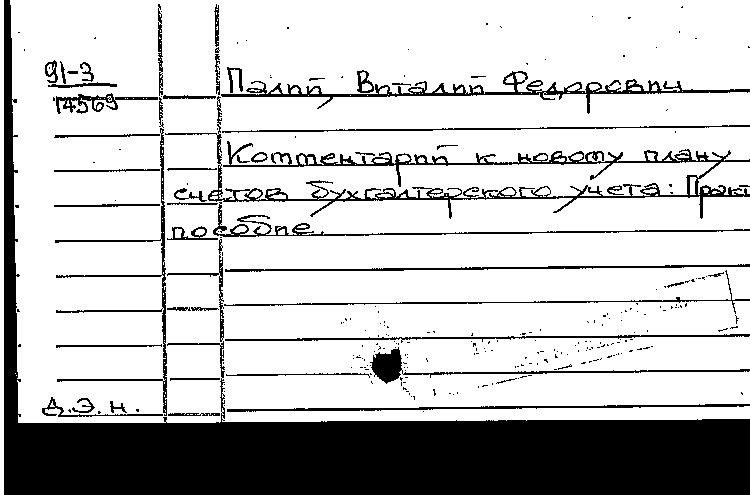 91-3
14569
Палий, Виталий Федорович
Комментарий к новому плану
счетов бухгалтерского учета: Практ
пособие.
д.э.н.